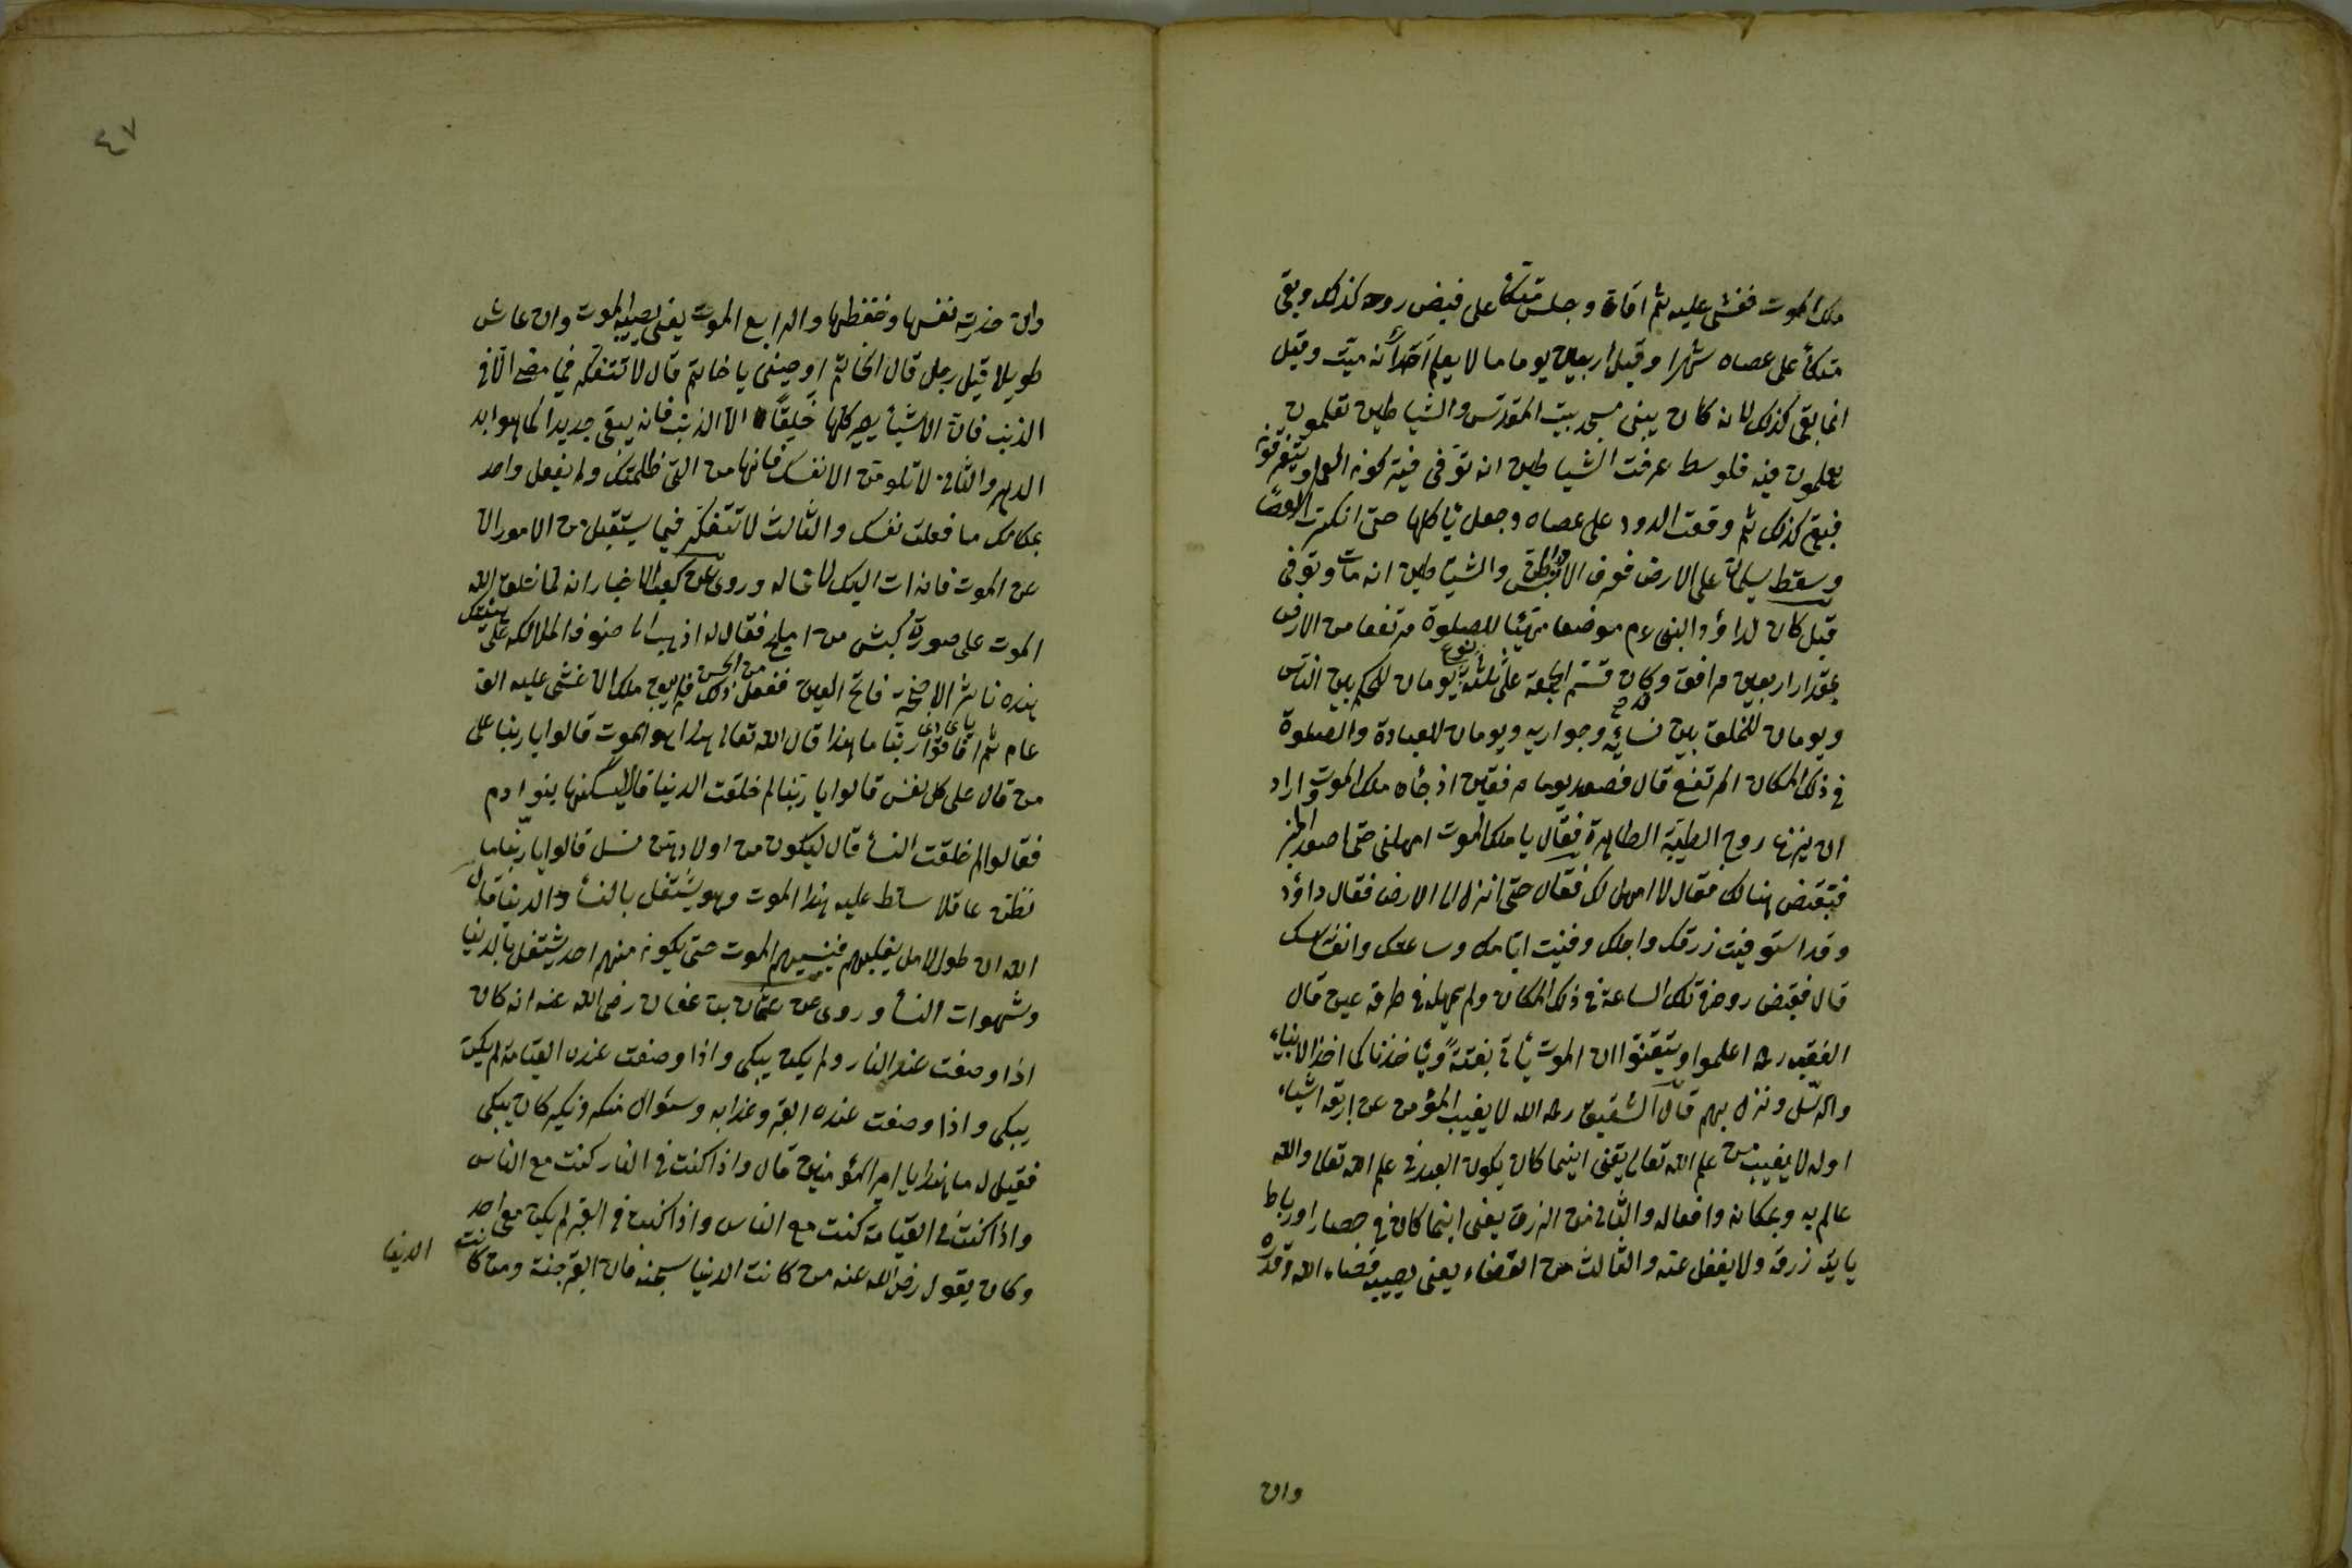 ملك الموت فغشى عليه ثم افاق وجلس متكأ على فيض روحه كذلك وبقى
متكأ على عصاه شهرا وقيل اربعين يوما ما لا يعلم احد أنه ميت وقيل
انما بقى كذلك لانه كان يبنى مسجد بيت المقدس والشياطين تعلمون
يعلمون فيه فلو سط عرفت الشياطين انه توفى فيتركونه العمل ويتفرقونه
فبقى كذلك ثم وقعت الدود على عصاه وجعل يأكلها حتى انكسرت العصا
وسقط سليمان على الارض فعرف الانس والشياطين انه مات وتوفى
قيل كان لداؤد النبى عم موضعا متهيئا للصلوة مرتفعا من الارض
بمقدار اربعين مرافق وكان قسم الجمعة على ثلثة نوع يومان للحكم بين الناس
ويومان للخلوة بين نسائه وجواريه ويومان للعبادة والصلوة
فى ذلك المكان المرتفع قال فصعد يوما مرفقين اذ جأه ملك الموت واراد
ان ينزع روح الطيبة الطاهرة فقال يا ملك الموت امهلنى حتى اصعد المنبر
فتقبض هنالك فقال لا امهل لك فقال حتى انزل الى الارض فقال داؤد
وقد استوفيت زرقك واجلك وفنيت ايامك وساعتك وانفاسك
قال فقبض روحه فى تلك الساعة فى ذلك المكان ولم يمهله فى طرفة عين قال
الفقيه رحه اعلموا وتيقنوا ان الموت يأتى بغتة ويأخذنا كما اخذ الانبياء
والرسل ونزل بهم قال الشقيق رحه الله لا يغيب المؤمن عن اربعة اشياء
اوله لا يغيب من علم الله تعالى يعنى اينما كان يكون العبد فى علم الله تعالى والله
عالم به وبمكانه وافعاله والثانى من الزرق يعنى اينما كان فى حصار او رباط
يايته زرقه ولا يغفل عنه والثالث من القضاء يعنى يصيبه قضاء الله وقدره
وان
٤٧
وان حذرت نفسها وحفظها والرابع الموت يعنى يصيبه الموت وان عاش
طويلا قيل رجل قال الخاتم اوصينى يا خاتم قال لا تتفكر فى مضى الا فى
الذنب فان الاشيأ يصير كلها خليقا الا الذنب فانه يبقى جديدا كما هو ابد
الدهر والثانى لا تلومن الا نفسك فانها من التى ظلمتك ولم يفعل واحد
بمكامك ما فعلت نفسك والثالث لا تتفكر فيما يستقبل من الامور الا
عن الموت فانه ات اليك لا محاله وروى عن كعب الاخبار انه لما خلق الله
الموت على صورة كبش من املح فقال له اذهب الى صنوف الملائكة على هيئتك
هذه ناشر الاجنحة فاتح العين ففعل ذلك فلم يبق ملك الا غشى عليه الف
عام ثم افاقوا ربنا ما هذا قال الله تعالى هذا هو الموت قالوا يا ربنا على
من قال على كل نفس قالوا يا ربنا لم خلقت الدنيا قال ليسكنها بنوا دم
فقالوا لم خلقت النسأ قال ليكون من اولادهن نسل قالوا يا ربنا ما
نظن عاقلا سلط عليه هذا الموت وهو يشتغل بالنسأ والدنيا قال
الله ان طول الامل يغلبهم فينسيهم الموت حتى يكونه منهم احد يشتغل بالدنيا
وشهوات النسأ وروى عن عثمان بن عفان رضى الله عنه انه كان
اذا وصفت عند النار ولم يكن يبكى واذا وصفت عنده القيامة لم يكن
يبكى واذا وصفت عنده القبر وعذابه وسئوال منكر ونكير كان يبكى
فقيل له ما هذا يا امير المؤمنين قال واذا كنت فى النار كنت مع الناس
واذا كنت فى القيامة كنت مع الناس واذا كنت فى القبر لم يكن مع احد
وكان يقول رضى الله عنه من كانت الدنيا سجنه فان القبر جنة ومن كانت
الدنيا